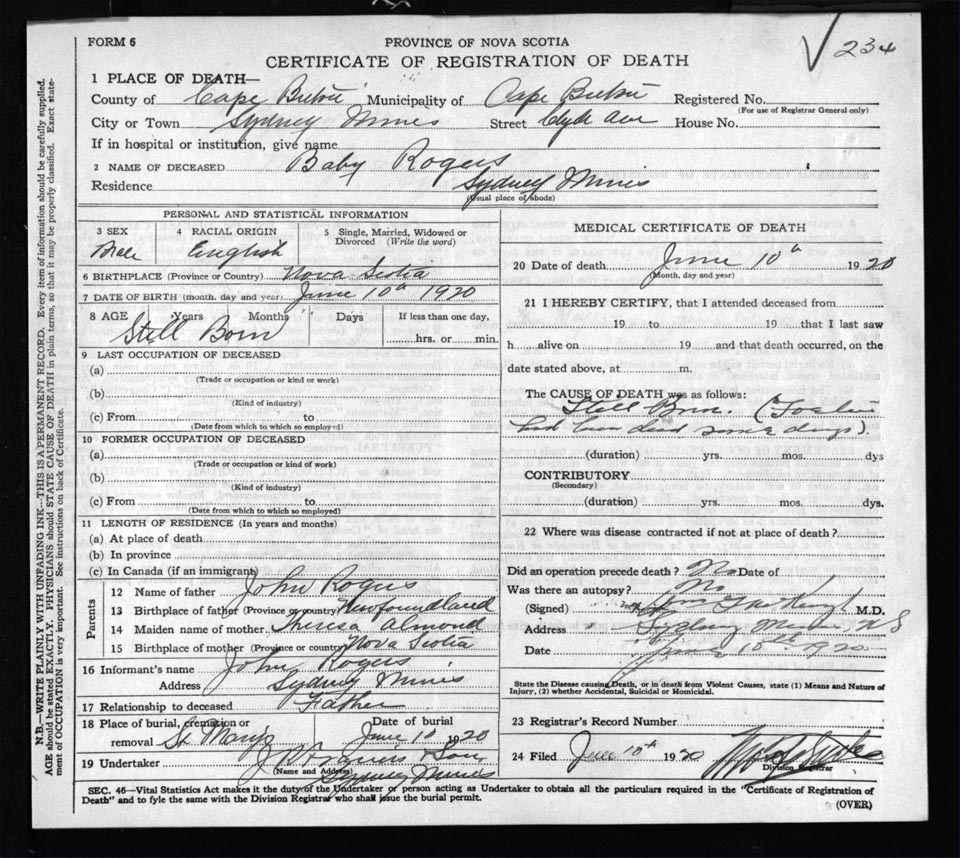 FORM 6
PROVINCE OF NOVA SCOTIA
234
CERTIFICATE OF REGISTRATION OF DEATH
1 PLACE OF DEATH—
County of Cape Breton Municipality of Cape Breton Registered No.
(For use of Registrar General only)
City or Town Sydney Mines Street Clyde Ave House No.
If in hospital or institution, give name
2 NAME OF DECEASED Baby Rogers
Residence Sydney Mines
(Usual place of abode)
PERSONAL AND STATISTICAL INFORMATION
3 SEX 4 RACIAL ORIGIN 5 Single, Married, Widowed or
Divorced (Write the word)
Male English
6 BIRTHPLACE (Province or Country) Nova Scotia
7 DATE OF BIRTH (month, day and year) June 10th 1920
8 AGE Years Months Days If less than one day,
Still Born hrs. or min.
9 LAST OCCUPATION OF DECEASED
(a)
(Trade or occupation or kind or work)
(b)
(Kind of industry)
(c) From to
(Date from which to which so employed)
10 FORMER OCCUPATION OF DECEASED
(a)
(Trade or occupation or kind of work)
(b)
(Kind of industry)
(c) From to
(Date from which to which so employed)
11 LENGTH OF RESIDENCE (In years and months)
(a) At place of death
(b) In province
(c) In Canada (if an immigrant)
Parents
12 Name of father John Rogers
13 Birthplace of father (Province or country) Newfoundland
14 Maiden name of mother Theresa Almond
15 Birthplace of mother (Province or country) Nova Scotia
16 Informant's name John Rogers
Address Sydney Mines
17 Relationship to deceased Father
18 Place of burial, cremation or Date of burial
removal St Marys June 10 1920
19 Undertaker & Son
(Name and Address)
Sydney Mines
MEDICAL CERTIFICATE OF DEATH
20 Date of death June 10th 1920
(Month, day and year)
21 I HEREBY CERTIFY, that I attended deceased from
19 to 19 that I last saw
h alive on 19 and that death occurred, on the
date stated above, at m.
The CAUSE OF DEATH was as follows:
Still Born. (Foetus
had been dead some days).
(duration) yrs. mos. dys
CONTRIBUTORY
(Secondary)
(duration) yrs. mos. dys.
22 Where was disease contracted if not at place of death?
Did an operation precede death? No Date of
Was there an autopsy? No
(Signed) M.D.
Address Sydney Mines NS
Date June 10th 1920
State the Disease causing Death, or in death from Violent Causes, state (1) Means and Nature of
Injury, (2) whether Accidental, Suicidal or Homicidal.
23 Registrar's Record Number
24 Filed June 10th 1920
Division Registrar
SEC. 46—Vital Statistics Act makes it the duty of the Undertaker or person acting as Undertaker to obtain all the particulars required in the "Certificate of Registration of
Death" and to fyle the same with the Division Registrar who shall issue the burial permit.
(OVER)
N.B.—WRITE PLAINLY WITH UNFADING INK—THIS IS A PERMANENT RECORD. Every item of information should be carefully supplied.
AGE should be stated EXACTLY. PHYSICIANS should STATE CAUSE OF DEATH in plain terms, so that it may be properly classified. Exact state-
ment of OCCUPATION is very important. See instructions on back of Certificate.